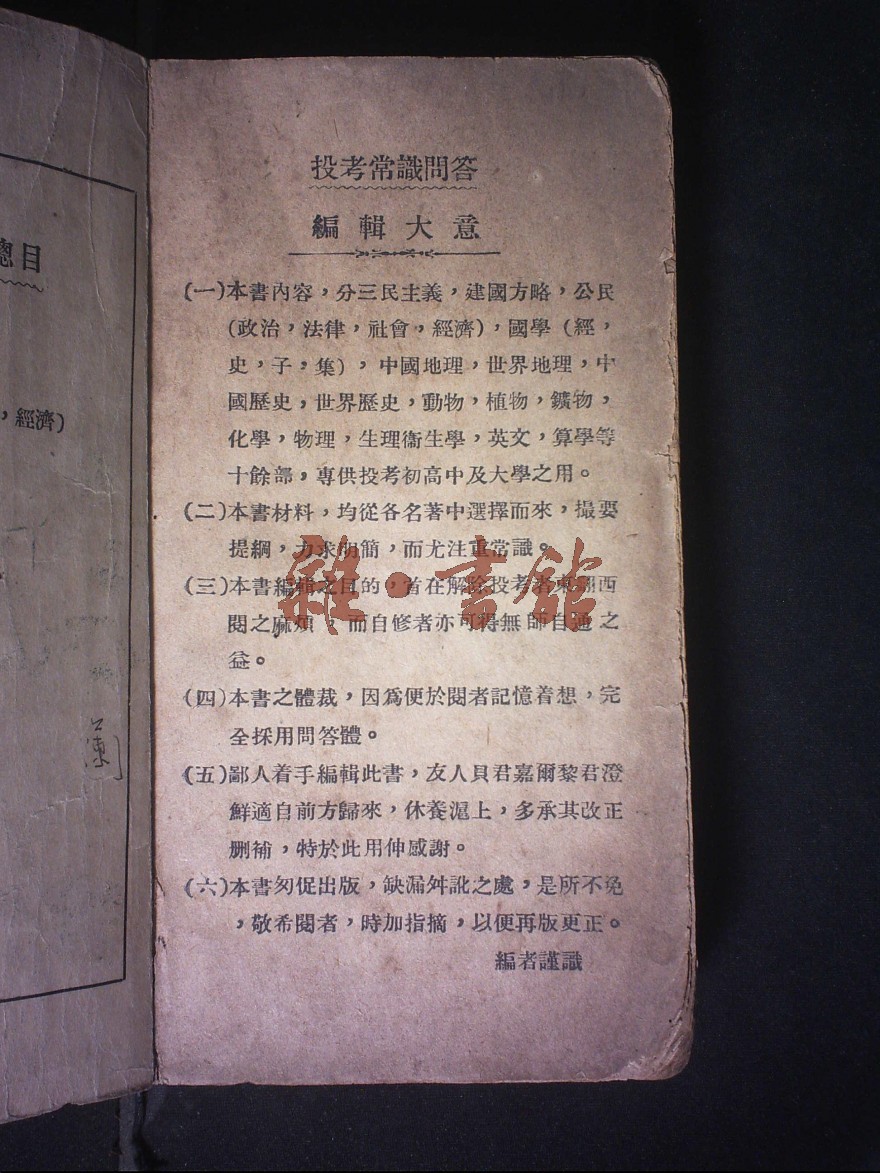 總目
，經濟）
蘭
投考常識問答
編輯大意
(一)本書內容，分三民主義，建國方略，公民
(政治，法律，社會，經濟)，國學（經，
史，子，集），中國地理，世界地理，中
國歷史，世界歷史，動物，植物，鑛物，
化學，物理，生理衞生學，英文，算學等
十餘部，專供投考初高中及大學之用。
(二)本書材料，均從各名著中選擇而來，撮要
提綱，力求明簡，而尤注重常識。
(三)本書編輯之目的，首在解除投考者東翻西
閱之麻煩，而自修者亦可得無師自通之
益。
(四)本書之體裁，因爲便於閱者記憶着想，完
全採用問答體。
(五)鄙人着手編輯此書，友人貝君嘉爾黎君澄
鮮適自前方歸來，休養滬上，多承其改正
删補，特於此用伸感謝。
(六)本書匆促出版，缺漏舛訛之處，是所不免
，敬希閱者，時加指摘，以便再版更正。
編者謹識
雜·書館